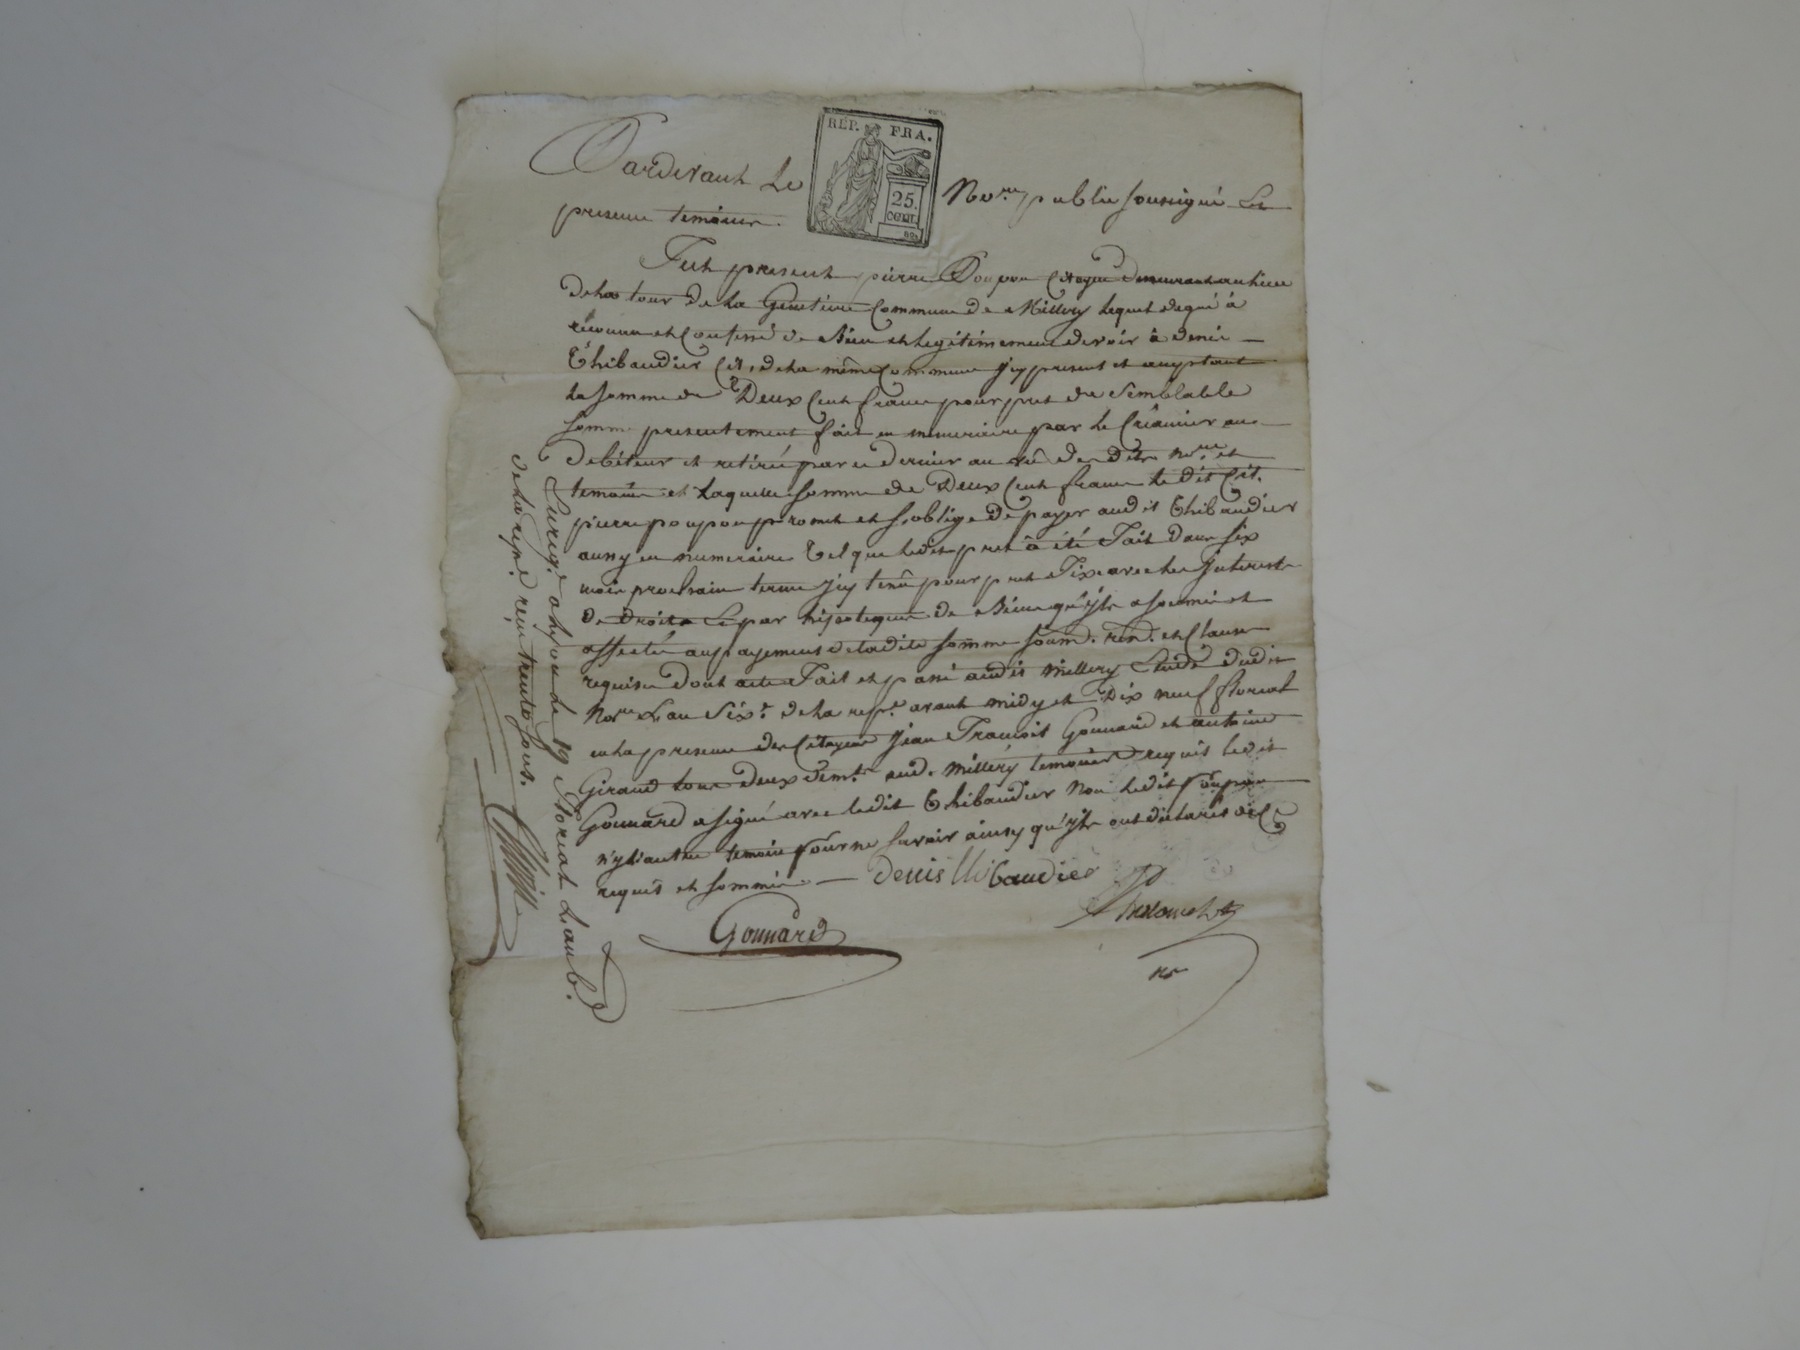 Pardevant Le No.re public soussigné Les
RÉP. FRA.
25.
CENT.
presens temoins.
Fut present pierre Poupon Citoyen demeurant au lieu
de la tour de La Commune de Millery Lequel de gré à
reconnu et Confessé de Bien et Legitimement devoir à denis
Thibaudier Cit. de la même Commune y present et acceptant
La somme de Deux Cent francs pour pret de Semblable
Somme presentement fait en numeraire par Le Créancier au
Debiteur et retiré par ce dernier au vû des dits No.re et
temoins et Laquelle Somme de Deux Cent francs Le dit Cit.
pierre poupon promet et s'oblige de payer audit Thibaudier
aussy en numeraire Tel que ledit pret à été Fait dans six
mois prochain terme y tenû pour prefixe avec les Interests
de droits Le par hipoteque de Biens qu'yls a soumis et
affectés au payement de ladite somme soum. ren. et Clauses
requises dont acte Fait et passé audit Millery Etude dudit
No.re L'an Six.e de la rep.e avant midy et Dix neuf floreal
en la presence des Citoyens Jean Francois Gounard et antoine
Giraud tous deux dem.ts aud. Millery temoins requis ledit
Gounard a signé avec ledit Thibaudier Non Ledit Poupon
n'y l'autre temoin pour ne savoir ainsy qu'yls ont déclarés de Ce
requis et sommés. — Denis Thibaudier
Gounard
Enreg.é a le 19 Floreal L'an 6.
de la rep.e reçu trente sous.